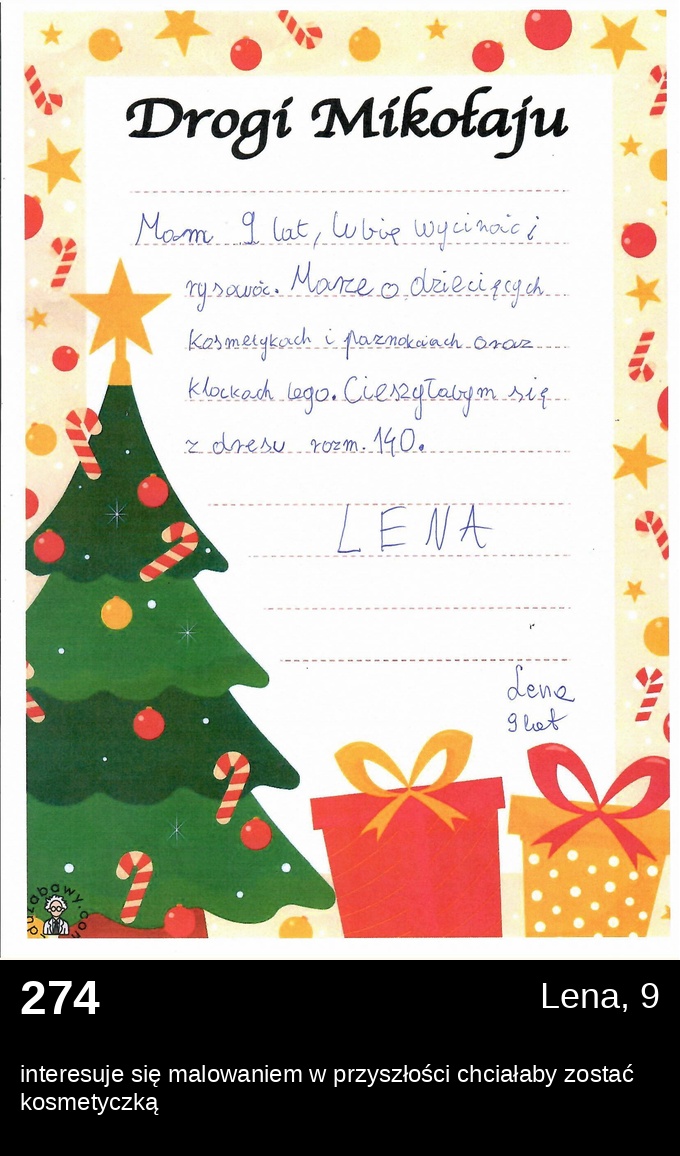 Drogi Mikołaju
Mam 9 lat, lubię wycinać i
rysować. Marzę o dziecięcych
kosmetykach i paznokciach oraz
klockach lego. Cieszyłabym się
z dresu rozm. 140.
LENA
Lena
9 lat
274
Lena, 9
interesuje się malowaniem w przyszłości chciałaby zostać
kosmetyczką